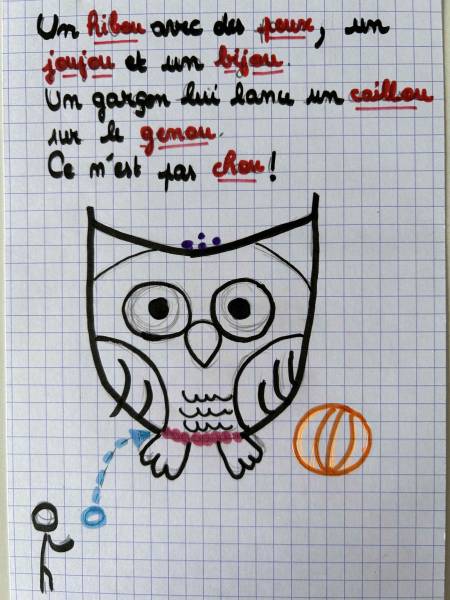 Un hibou avec des poux, un
joujou et un bijou
Un garçon lui lance un caillou
sur le genou.
Ce n'est pas chou!